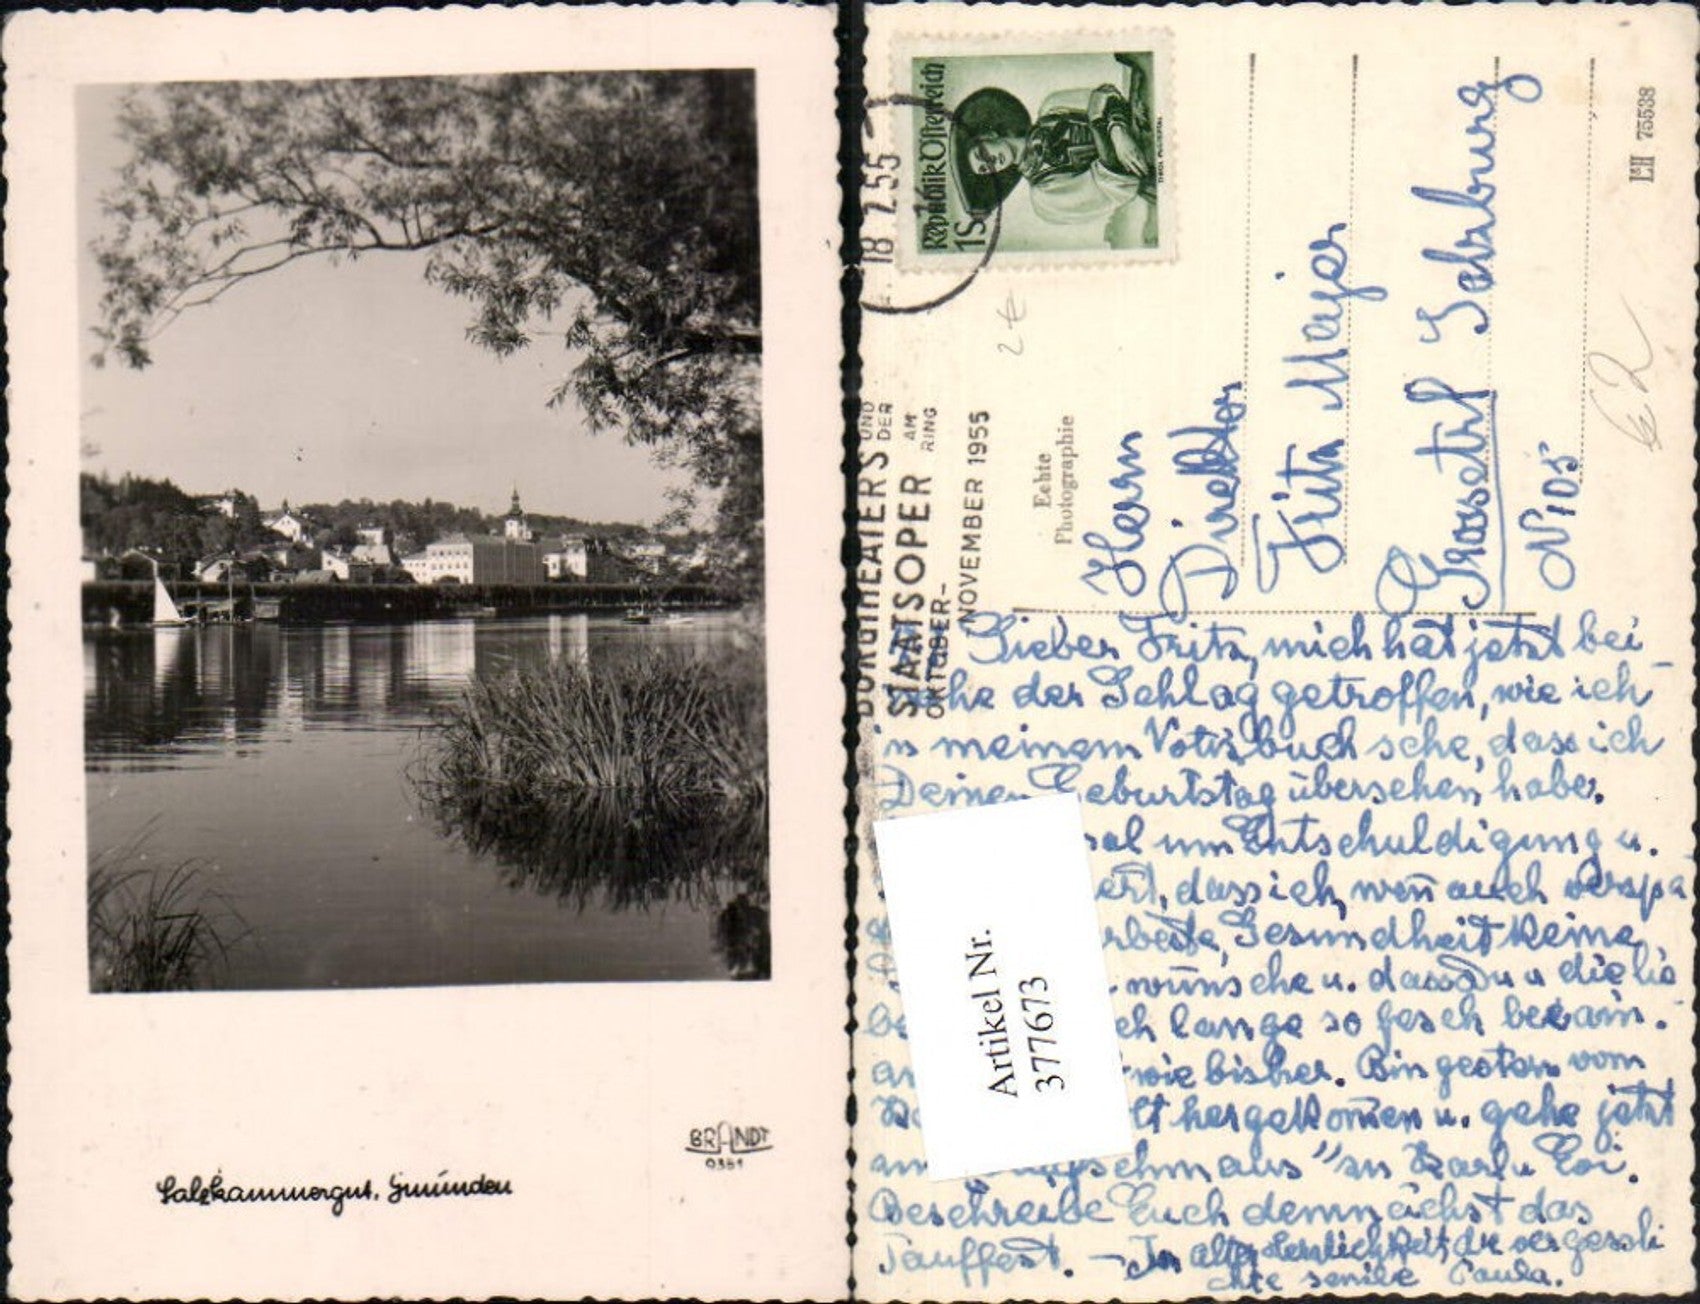 Salzkammergut, Gmunden
BRANDT
0381
Republik Österreich
1S
18.2.55
BURGTHEATERS UND
DER
STAATSOPER AM
RING
OKTOBER-
NOVEMBER 1955
Echte
Photographie
LH 75538
2 €
€ 2
Herrn
Direktor
Fritz Majer
Grossetil Salzburg
N 105
Lieber Fritz, mich hat jetzt bei
der Schlag getroffen, wie ich
in meinem Votizbuch sehe, dass ich
Deinen Geburtstag übersehen habe.
um Entschuldigung u.
dass ich, wen̄ auch verspä
Gesundheit keine
wünsche u. dass Du u die lie
lange so fesch beiam.
wie bisher. Bin gestern vom
hergekom̄en u. gehe jetzt
aus" zu Karl u Evi.
Beschreibe Euch demnächst das
Tauffest. – In alter Herzlichkeit, die vergessli
che senile Paula.
Artikel Nr.
377673